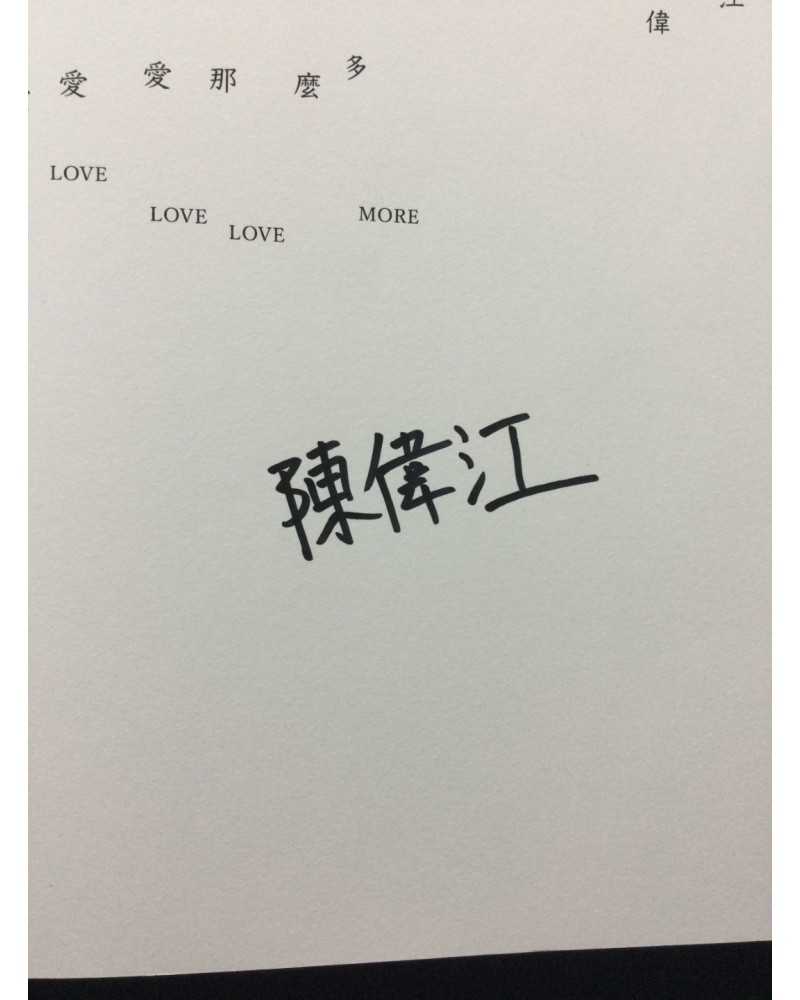 偉 江
愛 愛 那 麼 多
LOVE
LOVE LOVE MORE
陳偉江